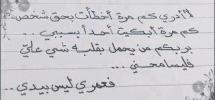 لا أدري كم مرة أخطأت بحق شخص
كم مرة أبكيت أحدا بسببي ..
بربكم من يحمل بقلبه شي عليّ
فليسامحني ...
فعمري ليس بيدي ..